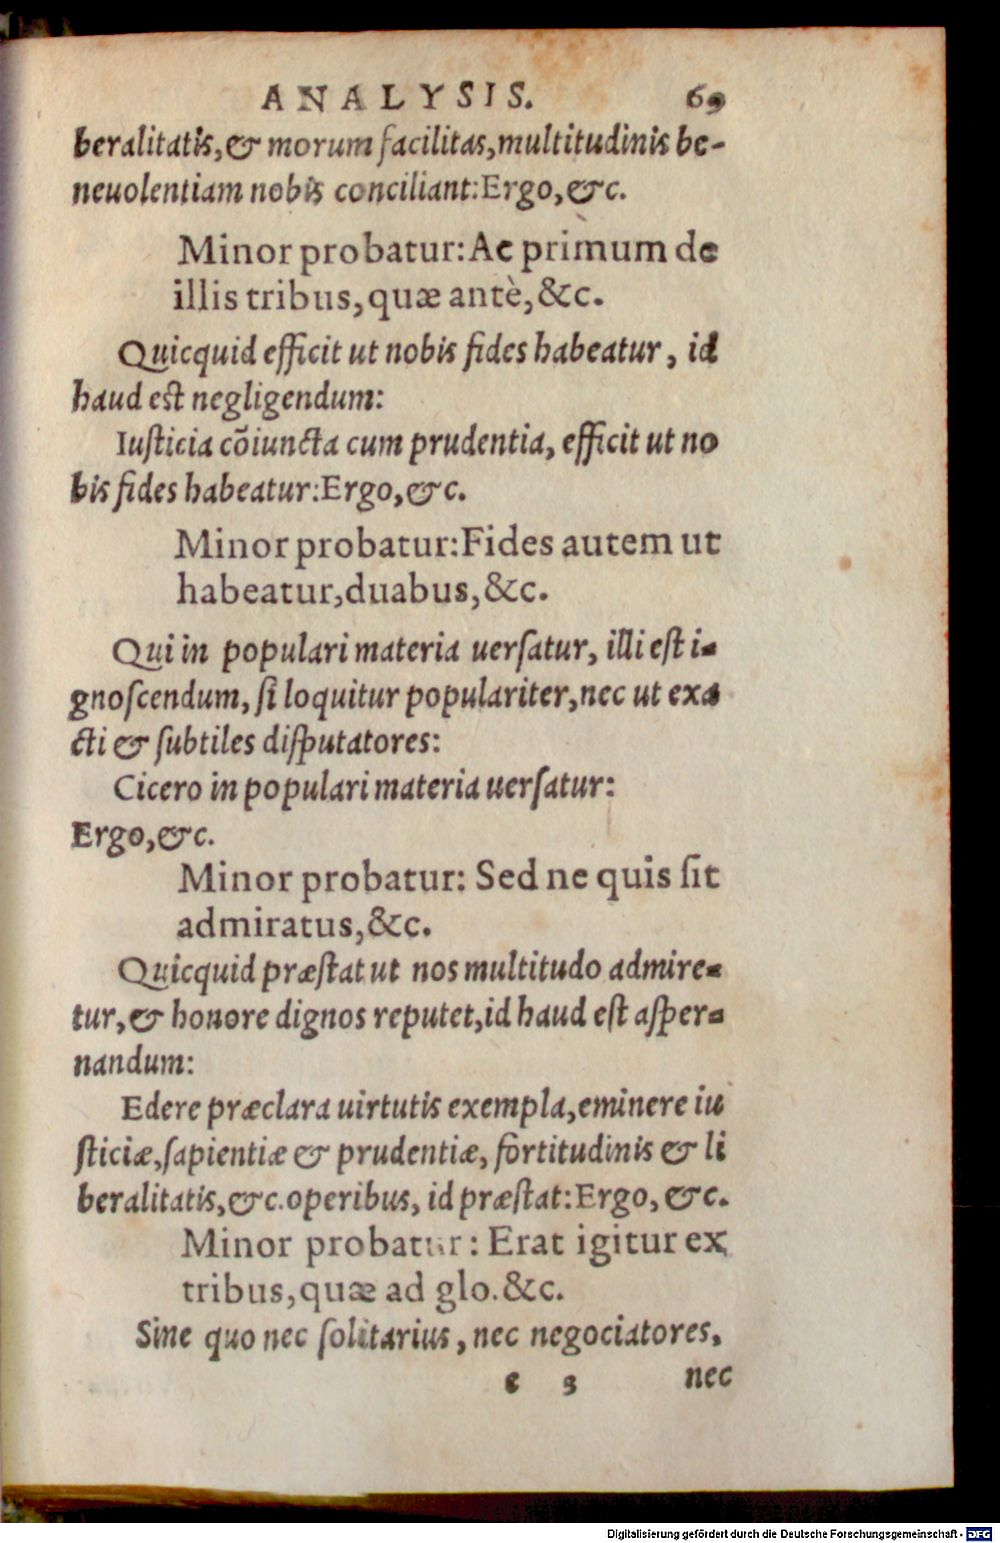 ANALYSIS. 69
beralitatis, & morum facilitas, multitudinis be-
neuolentiam nobis conciliant: Ergo, &c.
Minor probatur: Ac primum de
illis tribus, quæ antè, &c.
Quicquid efficit ut nobis fides habeatur, id
haud est negligendum:
Iusticia cõiuncta cum prudentia, efficit ut no
bis fides habeatur: Ergo, &c.
Minor probatur: Fides autem ut
habeatur, duabus, &c.
Qui in populari materia uersatur, illi est i-
gnoscendum, si loquitur populariter, nec ut exa
cti & subtiles disputatores:
Cicero in populari materia uersatur:
Ergo, &c.
Minor probatur: Sed ne quis sit
admiratus, &c.
Quicquid præstat ut nos multitudo admire-
tur, & honore dignos reputet, id haud est asper-
nandum:
Edere præclara uirtutis exempla, eminere iu
sticiæ, sapientiæ & prudentiæ, fortitudinis & li
beralitatis, &c. operibus, id præstat: Ergo, &c.
Minor probatur: Erat igitur ex
tribus, quæ ad glo. &c.
Sine quo nec solitarius, nec negociatores,
e 3 nec
Digitalisierung gefördert durch die Deutsche Forschungsgemeinschaft - DFG